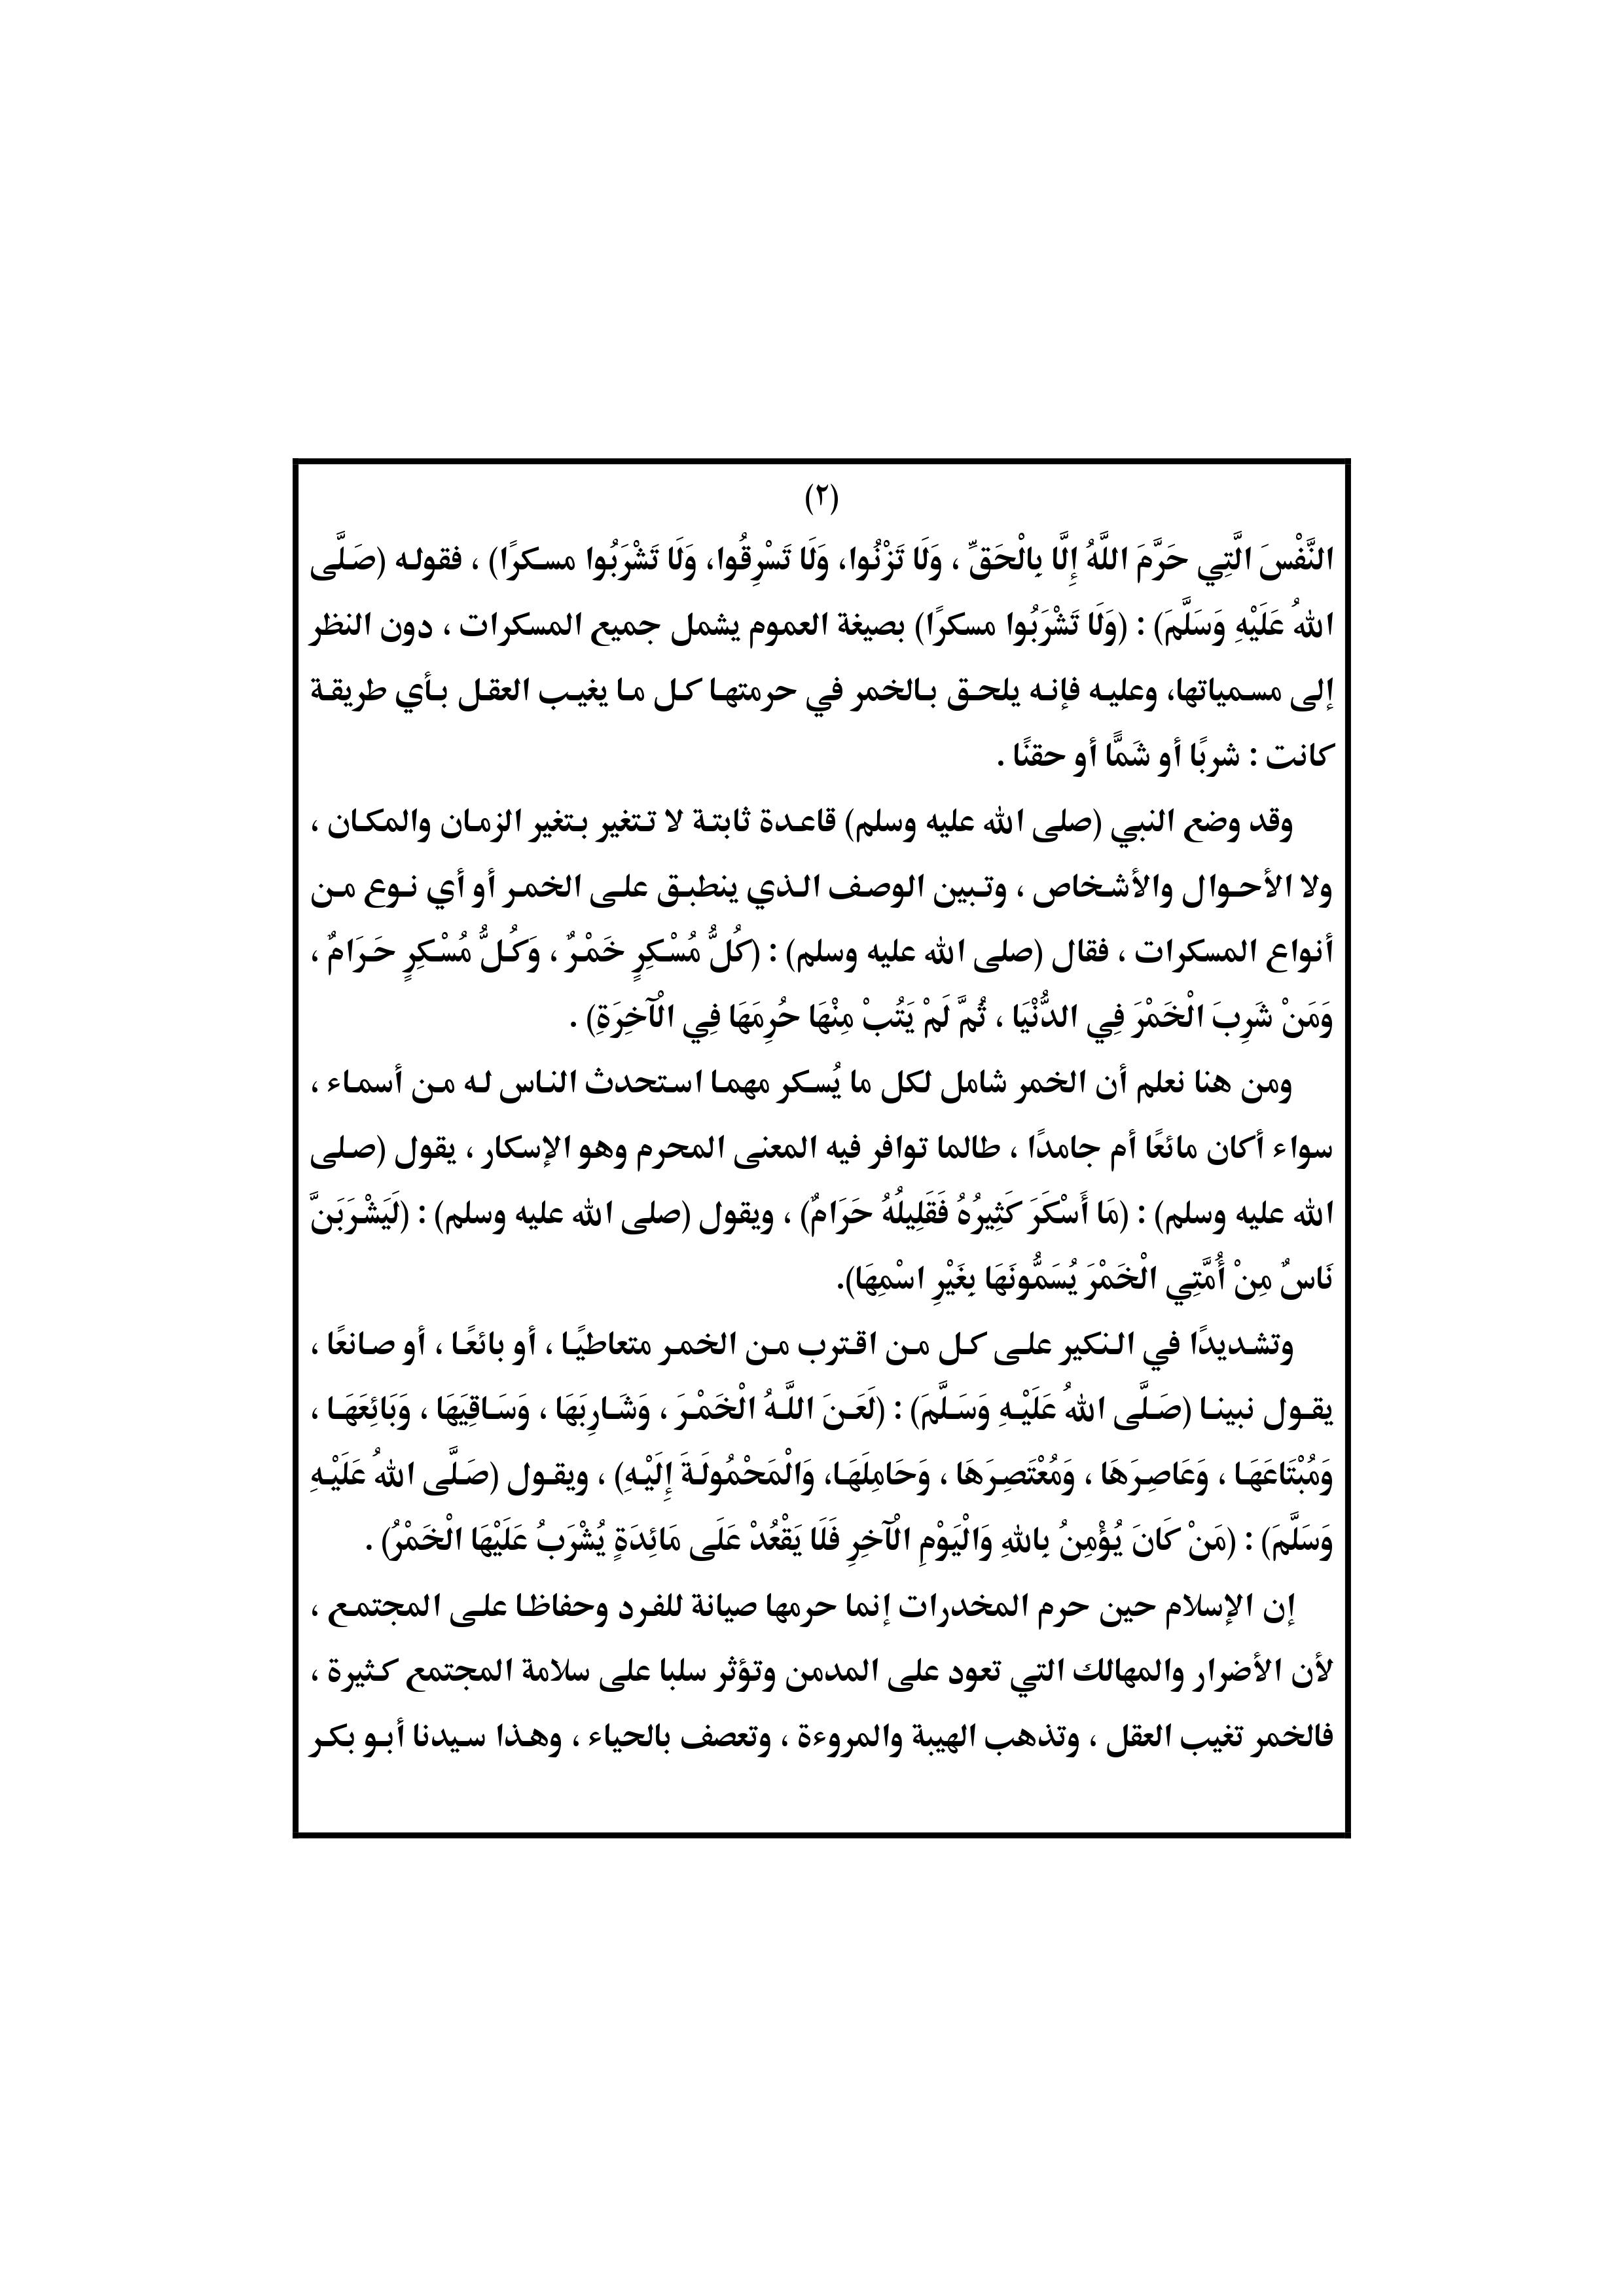 (٢)
النَّفْسَ الَّتِي حَرَّمَ اللَّهُ إِلَّا بِالْحَقِّ ، وَلَا تَزْنُوا، وَلَا تَسْرِقُوا، وَلَا تَشْرَبُوا مسكرًا) ، فقوله (صَلَّى
اللهُ عَلَيْهِ وَسَلَّمَ) : (وَلَا تَشْرَبُوا مسكرًا) بصيغة العموم يشمل جميع المسكرات ، دون النظر
إلى مسمياتها، وعليه فإنه يلحق بالخمر في حرمتها كل ما يغيب العقل بأي طريقة
كانت : شربًا أو شَمًّا أو حقنًا .
وقد وضع النبي (صلى الله عليه وسلم) قاعدة ثابتة لا تتغير بتغير الزمان والمكان ،
ولا الأحوال والأشخاص ، وتبين الوصف الذي ينطبق على الخمر أو أي نوع من
أنواع المسكرات ، فقال (صلى الله عليه وسلم) : (كُلُّ مُسْكِرٍ خَمْرٌ ، وَكُلُّ مُسْكِرٍ حَرَامٌ ،
وَمَنْ شَرِبَ الْخَمْرَ فِي الدُّنْيَا ، ثُمَّ لَمْ يَتُبْ مِنْهَا حُرِمَهَا فِي الْآخِرَةِ) .
ومن هنا نعلم أن الخمر شامل لكل ما يُسكر مهما استحدث الناس له من أسماء ،
سواء أكان مائعًا أم جامدًا ، طالما توافر فيه المعنى المحرم وهو الإسكار ، يقول (صلى
الله عليه وسلم) : (مَا أَسْكَرَ كَثِيرُهُ فَقَلِيلُهُ حَرَامٌ) ، ويقول (صلى الله عليه وسلم) : (لَيَشْرَبَنَّ
نَاسٌ مِنْ أُمَّتِي الْخَمْرَ يُسَمُّونَهَا بِغَيْرِ اسْمِهَا).
وتشديدًا في النكير على كل من اقترب من الخمر متعاطيًا ، أو بائعًا ، أو صانعًا ،
يقول نبينا (صَلَّى اللهُ عَلَيْهِ وَسَلَّمَ) : (لَعَنَ اللَّهُ الْخَمْرَ ، وَشَارِبَهَا ، وَسَاقِيَهَا ، وَبَائِعَهَا ،
وَمُبْتَاعَهَا ، وَعَاصِرَهَا ، وَمُعْتَصِرَهَا ، وَحَامِلَهَا، وَالْمَحْمُولَةَ إِلَيْهِ) ، ويقول (صَلَّى اللهُ عَلَيْهِ
وَسَلَّمَ) : (مَنْ كَانَ يُؤْمِنُ بِاللهِ وَالْيَوْمِ الْآخِرِ فَلَا يَقْعُدْ عَلَى مَائِدَةٍ يُشْرَبُ عَلَيْهَا الْخَمْرُ) .
إن الإسلام حين حرم المخدرات إنما حرمها صيانة للفرد وحفاظا على المجتمع ،
لأن الأضرار والمهالك التي تعود على المدمن وتؤثر سلبا على سلامة المجتمع كثيرة ،
فالخمر تغيب العقل ، وتذهب الهيبة والمروءة ، وتعصف بالحياء ، وهذا سيدنا أبو بكر